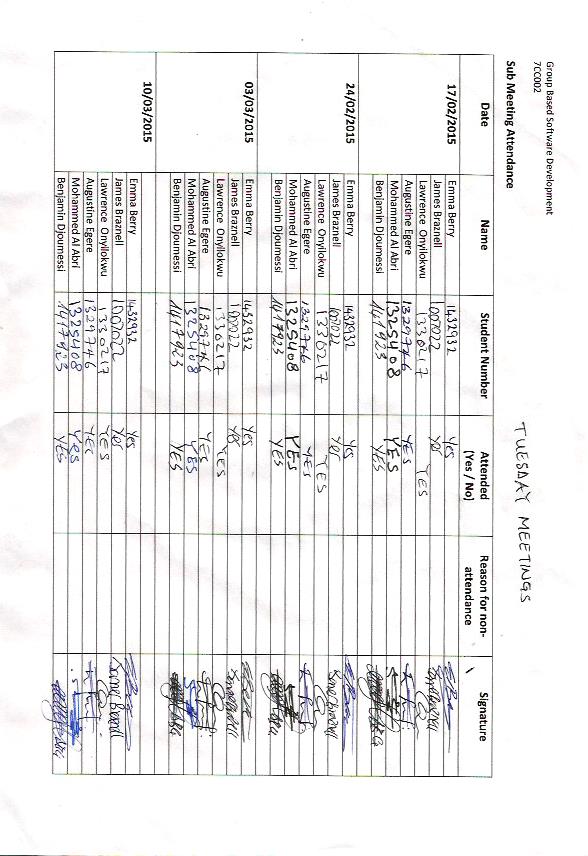 Group Based Software Development
7CC002
TUESDAY MEETINGS
Sub Meeting Attendance
Date Name Student Number Attended (Yes / No) Reason for non-attendance Signature
17/02/2015 Emma Berry 1432932 Yes
James Braznell 1007022 Yes
Lawrence Onyilokwu 1330217 YES
Augustine Egere 1329746 YES
Mohammed Al Abri 1325408 YES
Benjamin Djoumessi 1417923 YES
24/02/2015 Emma Berry 1432932 Yes
James Braznell 1007022 Yes
Lawrence Onyilokwu 1330217 YES
Augustine Egere 1329746 YES
Mohammed Al Abri 1325408 YES
Benjamin Djoumessi 1417923 YES
03/03/2015 Emma Berry 1432932 Yes
James Braznell 1007022 Yes
Lawrence Onyilokwu 1330217 YES
Augustine Egere 1329746 YES
Mohammed Al Abri 1325408 YES
Benjamin Djoumessi 1417923 YES
10/03/2015 Emma Berry 1432932 Yes
James Braznell 1007022 Yes
Lawrence Onyilokwu 1330217 YES
Augustine Egere 1329746 YES
Mohammed Al Abri 1325408 Yes
Benjamin Djoumessi 1417923 YES